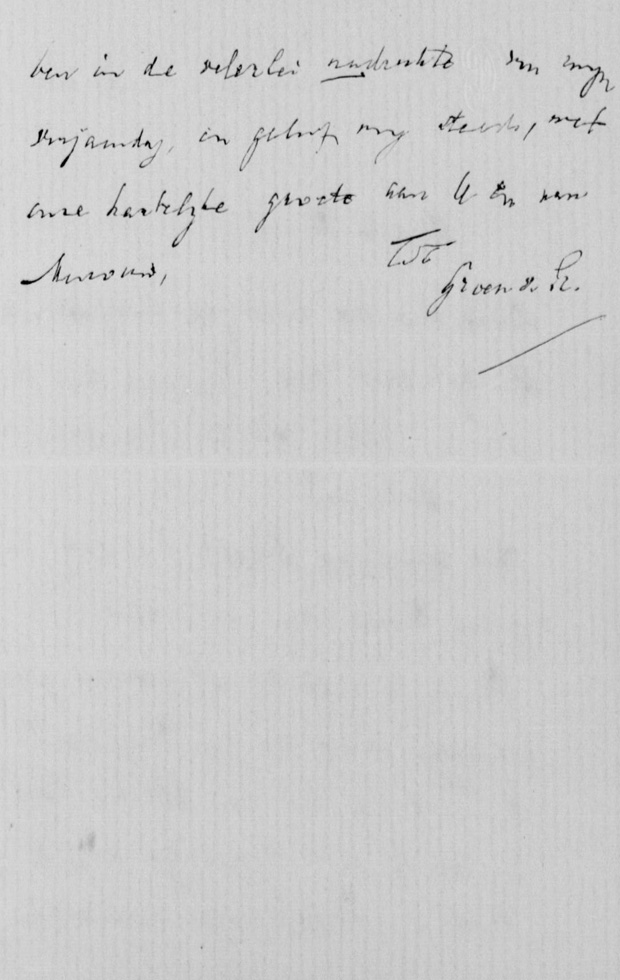 ben in de velerlei nadeelen van mijn
en geloof mij steeds, met
onze hartelijke groete aan U en aan
Mevrouw,
TàT
Groen v. Pr.